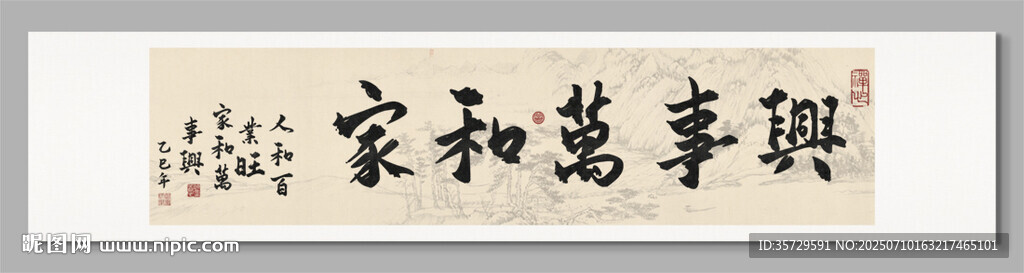 家和萬事興
人和百
業旺
家和萬
事興
乙巳年
昵图网 www.nipic.com
ID:35729591 NO:20250710163217465101